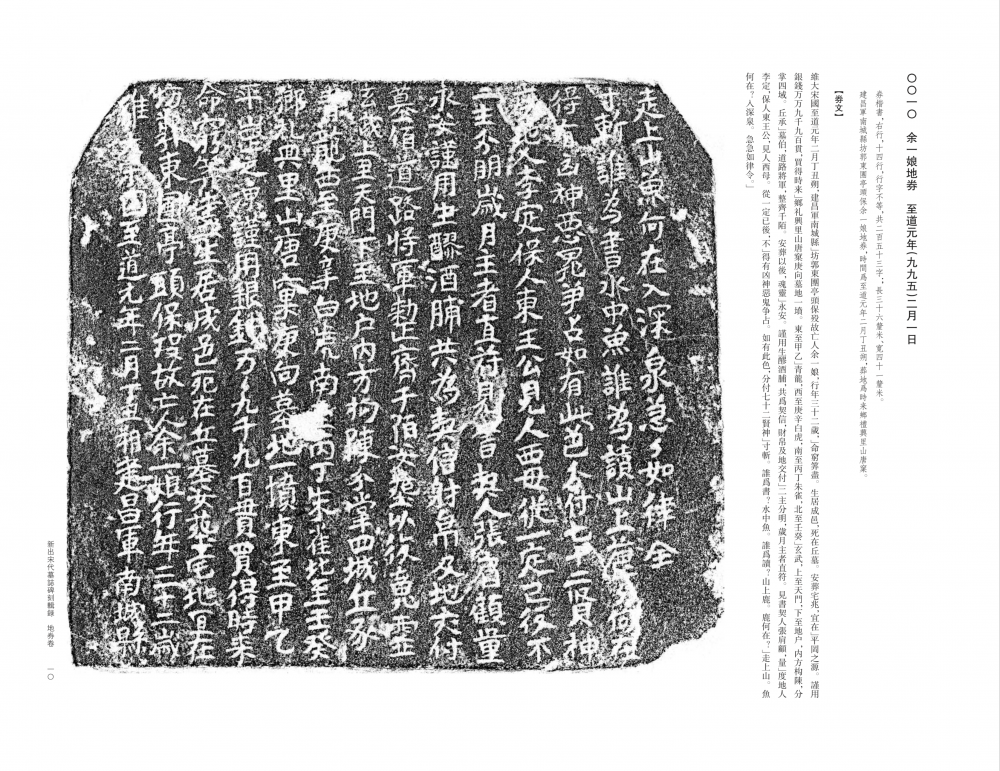 〇〇一〇　余一娘地券　至道元年(九九五)二月一日
券楷書，右行，十四行，行字不等，共二百五十三字，長三十六釐米，寬四十一釐米。
建昌軍南城縣坊郭東團亭頭保余一娘地券，時間爲至道元年二月丁丑朔，葬地爲時来鄉禮興里山唐窠。
【券文】
維大宋國至道元年二月丁丑朔，建昌軍南城縣」坊郭東團亭頭保歿故亡人余一娘，行年三十二歲，」命窮筭盡。生居成邑，死在丘墓。安葬宅兆，宜在」平岡之源。謹用
銀錢万万九千九百貫，買得時来」鄉礼興里山唐窠庚向墓地一墳。東至甲乙」青龍，西至庚辛白虎，南至丙丁朱雀，北至壬癸」玄武，上至天門，下至地户，内方构陳，分
掌四域。丘承」墓伯，道路將軍，整齊千陌。安葬以後，魂靈」永安。謹用生醪酒脯，共爲契信，財帛及地交付」二主分明，歲月主者直符。見書契人張肩顧，量」度地人
李定，保人東王公，見人西母。從一定已後，不」得有凶神惡鬼争占。如有此色，分付七十二賢神」寸斬。誰爲書？水中魚。誰爲讀？山上鹿。鹿何在？」走上山。魚
何在？入深泉。急急如律令。」
維大宋國至道元年二月丁丑朔建昌軍南城縣
坊郭東團亭頭保歿故亡人余一娘行年三十二歲
命窮筭盡生居成邑死在丘墓安葬宅兆宜在
平岡之源謹用銀錢万々九千九百貫買得時来
鄉礼興里山唐窠庚向墓地一墳東至甲乙
青龍西至庚辛白虎南至丙丁朱雀北至壬癸
玄武上至天門下至地户内方构陳分掌四域丘承
墓伯道路將軍整齊千陌安葬以後魂靈
永安謹用生醪酒脯共為契信財帛及地交付
二主分明歲月主者直符見書契人張肩顧量
度地人李定保人東王公見人西母從一定已後不
得有凶神惡鬼争占如有此色分付七十二賢神
寸斬誰為書水中魚誰為讀山上鹿鹿何在
走上山魚何在入深泉急々如律令
新出宋代墓誌碑刻輯録　地券卷　一〇